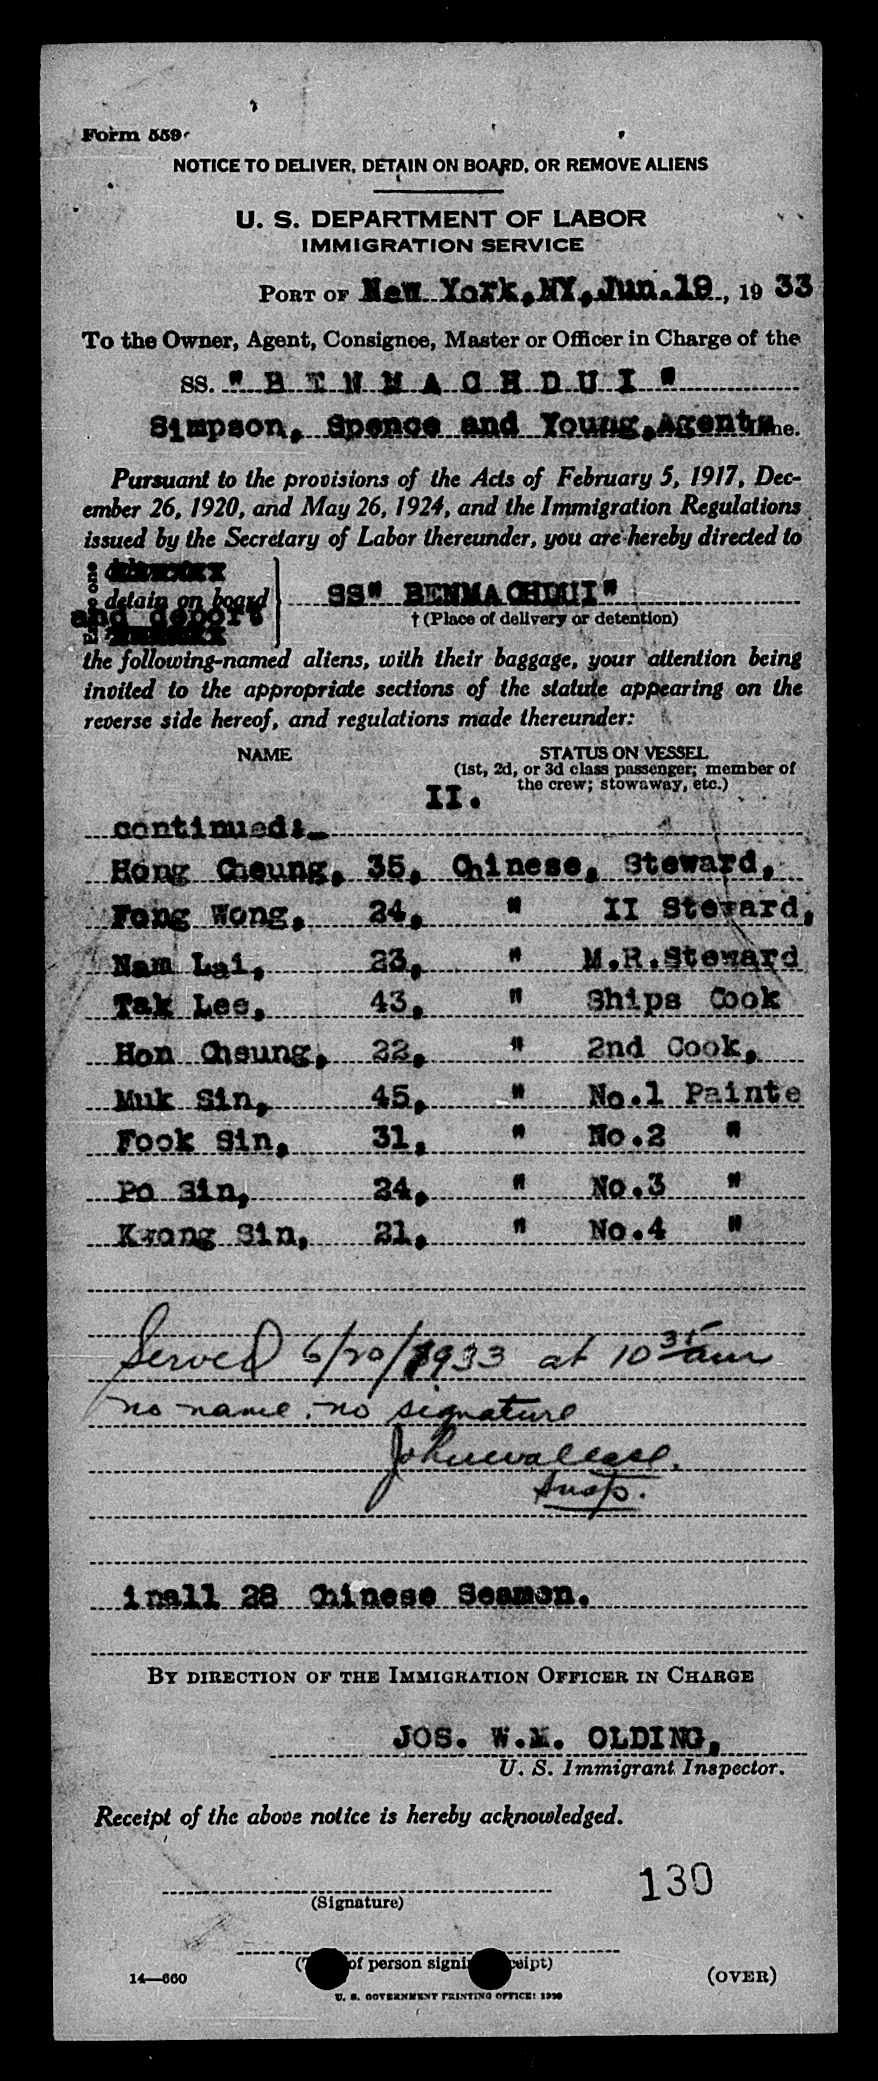 Form 559
NOTICE TO DELIVER, DETAIN ON BOARD, OR REMOVE ALIENS
U. S. DEPARTMENT OF LABOR
IMMIGRATION SERVICE
PORT OF New York, NY, Jun. 19, 19 33
To the Owner, Agent, Consignee, Master or Officer in Charge of the
SS. "B E N M A C H D U I"
Simpson, Spence and Young, Agents
Pursuant to the provisions of the Acts of February 5, 1917, Dec-
ember 26, 1920, and May 26, 1924, and the Immigration Regulations
issued by the Secretary of Labor thereunder, you are hereby directed to
detain on board SS" BENMACHDUI"
and deport † (Place of delivery or detention)
the following-named aliens, with their baggage, your attention being
invited to the appropriate sections of the statute appearing on the
reverse side hereof, and regulations made thereunder:
NAME STATUS ON VESSEL
(1st, 2d, or 3d class passenger; member of
the crew; stowaway, etc.)
II.
continued:-
Hong Cheung, 35, Chinese, Steward,
Fong Wong, 24, " II Steward,
Nam Lai, 23, " M.R.Steward
Tak Lee, 43, " Ships Cook
Hon Cheung, 22, " 2nd Cook,
Muk Sin, 45, " No.1 Painte
Fook Sin, 31, " No.2 "
Po Sin, 24, " No.3 "
Kwong Sin, 21, " No.4 "
Served 6/20/1933 at 10 35 am
no name, no signature
Insp.
inall 28 Chinese Seamen.
BY DIRECTION OF THE IMMIGRATION OFFICER IN CHARGE
JOS. W.M. OLDING,
U. S. Immigrant Inspector.
Receipt of the above notice is hereby acknowledged.
130
(Signature)
of person signi
14—660
(OVER)
U. S. GOVERNMENT PRINTING OFFICE: